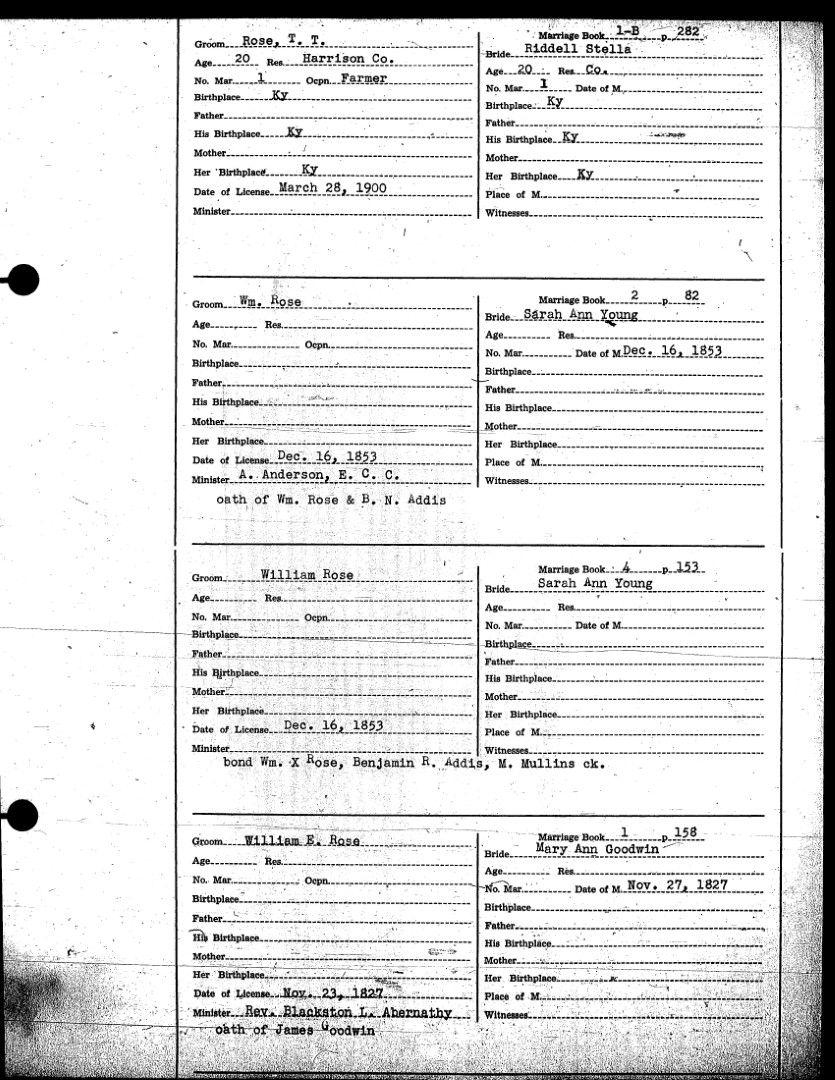 Groom Rose, T. T.
Age 20 Res. Harrison Co.
No. Mar. 1 Ocpn. Farmer
Birthplace Ky
Father
His Birthplace Ky
Mother
Her Birthplace Ky
Date of License March 28, 1900
Minister
Marriage Book 1-B p. 282
Bride Riddell Stella
Age 20 Res Co.
No. Mar 1 Date of M.
Birthplace Ky
Father
His Birthplace Ky
Mother
Her Birthplace Ky
Place of M.
Witnesses
Groom Wm. Rose
Age Res.
No. Mar. Ocpn.
Birthplace
Father
His Birthplace
Mother
Her Birthplace
Date of License Dec. 16, 1853
Minister A. Anderson, E. C. C.
oath of Wm. Rose & B. N. Addis
Marriage Book 2 p. 82
Bride Sarah Ann Young
Age Res.
No. Mar. Date of M. Dec. 16, 1853
Birthplace
Father
His Birthplace
Mother
Her Birthplace
Place of M.
Witnesses
Groom William Rose
Age Res.
No. Mar. Ocpn.
Birthplace
Father
His Birthplace
Mother
Her Birthplace
Date of License Dec. 16, 1853
Minister
Marriage Book 4 p. 153
Bride Sarah Ann Young
Age Res.
No. Mar. Date of M.
Birthplace
Father
His Birthplace
Mother
Her Birthplace
Place of M.
Witnesses
bond Wm. X Rose, Benjamin R. Addis, M. Mullins ck.
Groom William E. Rose
Age Res.
No. Mar. Ocpn.
Birthplace
Father
His Birthplace
Mother
Her Birthplace
Date of License Nov. 23, 1827
Minister Rev. Blackston L. Abernathy
oath of James Goodwin
Marriage Book 1 p. 158
Bride Mary Ann Goodwin
Age Res.
No. Mar. Date of M. Nov. 27, 1827
Birthplace
Father
His Birthplace
Mother
Her Birthplace
Place of M.
Witnesses